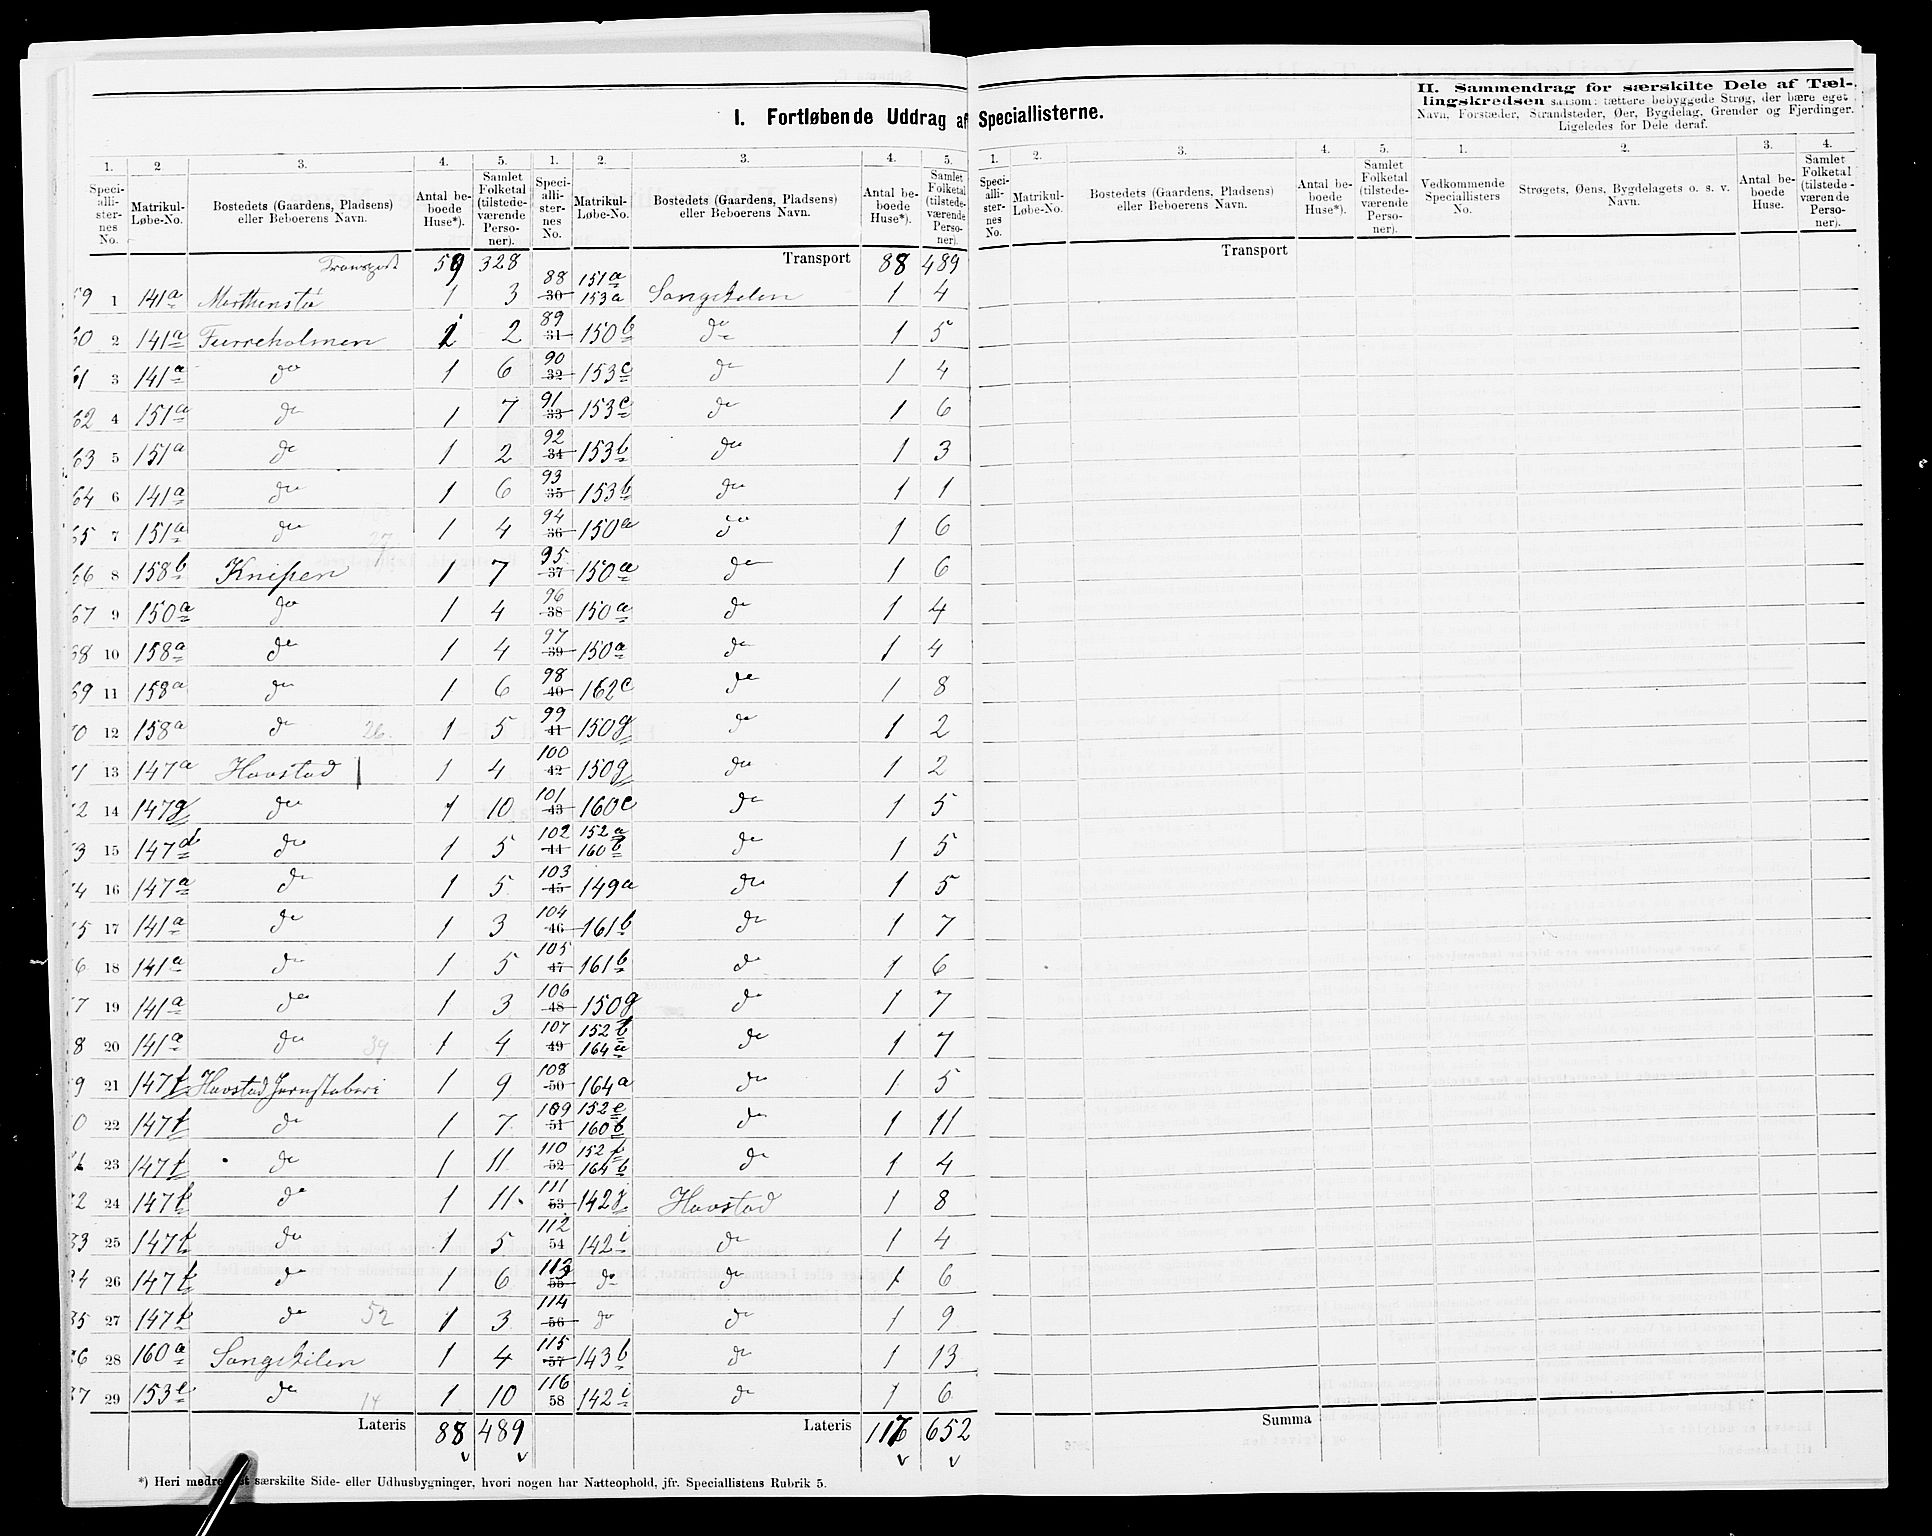 I. Fortløbende Uddrag af Speciallisterne.
II. Sammendrag for særskilte Dele af Tæl-
lingskredsen saasom: tættere bebyggede Strøg, der bære eget
Navn, Forstæder, Strandsteder, Øer, Bygdelag, Grender og Fjerdinger.
Ligeledes for Dele deraf.
1. 2 3. 4. 5. 1. 2. 3. 4. 5. 1. 2. 3. 4. 5. 1. 2. 3. 4.
Speciallisternes No. Matrikul-Løbe-No. Bostedets (Gaardens, Pladsens) eller Beboerens Navn. Antal beboede Huse*). Samlet Folketal (tilstedeværende Personer). Speciallisternes No. Matrikul-Løbe-No. Bostedets (Gaardens, Pladsens) eller Beboerens Navn. Antal beboede Huse*). Samlet Folketal (tilstedeværende Personer).
Speciallisternes No. Matrikul-Løbe-No. Bostedets (Gaardens, Pladsens) eller Beboerens Navn. Antal beboede Huse*). Samlet Folketal (tilstedeværende Personer). Vedkommende Speciallisters No. Strøgets, Øens, Bygdelagets o. s. v. Navn. Antal beboede Huse. Samlet Folketal (tilstedeværende Personer).
Transport 59 328 Transport 88 489 Transport
59 1 141a 1 3 88 30 151a 153a Songekilen 1 4
60 2 141a Furreholmen 1 2 89 31 150b do 1 5
61 3 141a do 1 6 90 32 153c do 1 4
62 4 151a do 1 7 91 33 153c do 1 6
63 5 151a do 1 2 92 34 153b do 1 3
64 6 141a do 1 6 93 35 153b do 1 1
65 7 151a do 27 1 4 94 36 150a do 1 6
66 8 158b Knipen 1 7 95 37 150a do 1 6
67 9 150a do 1 4 96 38 150a do 1 4
68 10 158a do 1 4 97 39 150a do 1 4
69 11 158a do 1 6 98 40 162c do 1 8
0 12 158a do 26. 1 5 99 41 150g do 1 2
1 13 147a Havstad 1 4 100 42 150g do 1 2
2 14 147g do 1 10 101 43 160c do 1 5
3 15 147d do 1 5 102 44 152a 160b do 1 5
4 16 147a do 1 5 103 45 149a do 1 5
5 17 141a do 1 3 104 46 161b do 1 7
6 18 141a do 1 5 105 47 161b do 1 6
7 19 141a do 1 3 106 48 150g do 1 7
8 20 141a do 39 1 4 107 49 152b 164a do 1 7
9 21 147f Havstad 1 9 108 50 164a do 1 5
0 22 147f do 1 7 109 51 152e 160b do 1 11
23 147f do 1 11 110 52 152f 164b do 1 4
2 24 147f do 1 11 111 53 142 Havstad 1 8
83 25 147f do 1 5 112 54 142i do 1 4
84 26 147f do 1 6 113 55 do do 1 6
85 27 147f do 52 1 3 114 56 do do 1 9
86 28 160a Songekilen 1 4 115 57 143b do 1 13
87 29 153e do 14 1 10 116 58 142i do 1 6
Lateris 88 489 Lateris 116 652 Summa
*) Heri særskilte Side- eller Udhusbygninger, hvori nogen har Natteophold, jfr. Speciallistens Rubrik 5.